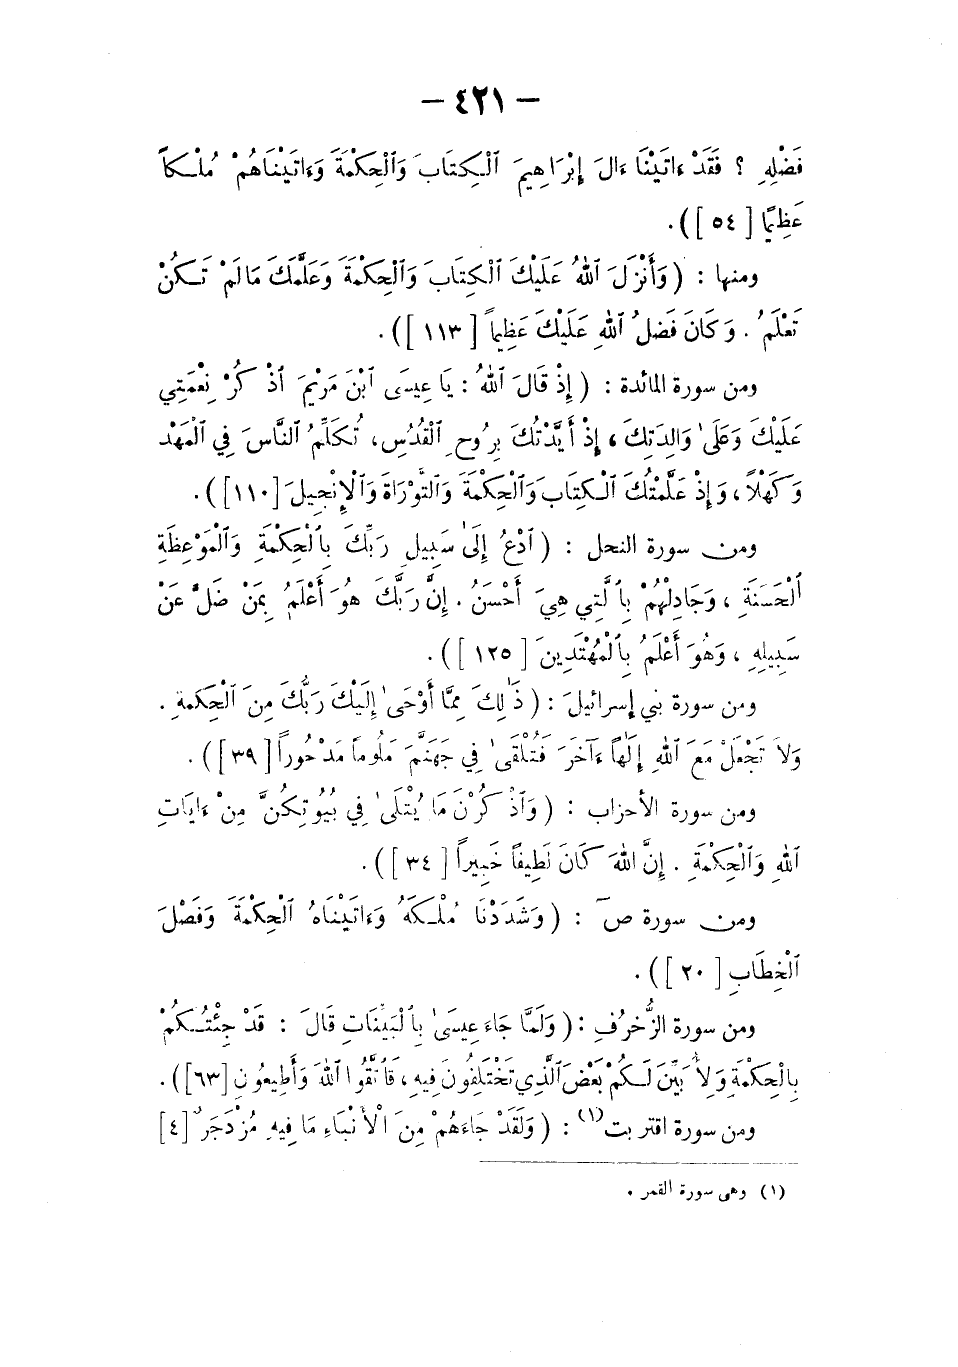 — ٤٢١ —
فَضْلِهِ ؟ فَقَدْ ءَاتَيْنَا ءَالَ إِبْرَاهِيمَ ٱلْكِتَابَ وَٱلْحِكْمَةَ وَءَاتَيْنَاهُمْ مُلْكاً
عَظِيمًا [ ٥٤ ] ) .
ومنها : ( وَأَنْزَلَ ٱللهُ عَلَيْكَ ٱلْكِتَابَ وَٱلْحِكْمَةَ وَعَلَّمَكَ مَا لَمْ تَكُنْ
تَعْلَمُ . وَكَانَ فَضلُ ٱللهِ عَلَيْكَ عَظِيماً [ ١١٣ ] ) .
ومن سورة المائدة : ( إِذْ قَالَ ٱللهُ : يَا عِيسَى ٱبْنَ مَرْيَمَ ٱذْ كُرْ نِعْمَتِي
عَلَيْكَ وَعَلَىٰ وَالِدَتِكَ ، إِذْ أَيَّدْتُكَ بِرُوحِ ٱلْقُدُسِ ، تُكَلِّمُ ٱلنَّاسَ فِي ٱلْمَهْدِ
وَكَهْلاً ، وَإِذْ عَلَّمْتُكَ ٱلْكِتَابَ وَٱلْحِكْمَةَ وَٱلتَّوْرَاةَ وَٱلْإِنْجِيلَ [ ١١٠ ] ) .
ومن سورة النحل : ( ٱدْعُ إِلَىٰ سَبِيلِ رَبِّكَ بِٱلْحِكْمَةِ وَٱلْمَوْعِظَةِ
ٱلْحَسَنَةِ ، وَجَادِلْهُمْ بِٱلَّتِي هِيَ أَحْسَنُ . إِنَّ رَبَّكَ هُوَ أَعْلَمُ بِمَنْ ضَلَّ عَنْ
سَبِيلِهِ ، وَهُوَ أَعْلَمُ بِٱلْمُهْتَدِينَ [ ١٢٥ ] ) .
ومن سورة بني إسرائيلَ : ( ذَٰلِكَ مِمَّا أَوْحَىٰ إِلَيْكَ رَبُّكَ مِنَ ٱلْحِكْمَةِ .
وَلاَ تَجْعَلْ مَعَ ٱللهِ إِلٰهاً ءَآخَرَ فَتُلْقَىٰ فِي جَهَنَّمَ مَلُوماً مَدْحُوراً [ ٣٩ ] ) .
ومن سورة الأحزاب : ( وَٱذْ كُرْنَ مَا يُتْلَىٰ فِي بُيُوتِكُنَّ مِنْ ءَايَاتِ
ٱللهِ وَٱلْحِكْمَةِ . إِنَّ ٱللهَ كَانَ لَطِيفاً خَبِيراً [ ٣٤ ] ) .
ومن سورة صٓ : ( وَشَدَدْنَا مُلْكَهُ وَءَاتَيْنَاهُ ٱلْحِكْمَةَ وَفَصْلَ
ٱلْخِطَابِ [ ٢٠ ] ) .
ومن سورة الزُّخرُفِ : ( وَلَمَّا جَاءَ عِيسَىٰ بِٱلْبَيِّنَاتِ قَالَ : قَدْ جِئْتُكُمْ
بِالْحِكْمَةِ وَلِأُبَيِّنَ لَكُمْ بَعْضَ ٱلَّذِي تَخْتَلِفُونَ فِيهِ ، فَٱتَّقُوا ٱللهَ وَأَطِيعُونِ [ ٦٣ ] ) .
ومن سورة اقتربت (١) : ( وَلَقَدْ جَاءَهُمْ مِنَ الْأَنْبَاءِ مَا فِيهِ مُزْدَجَرٌ [ ٤ ]
(١) وهى سورة القمر .